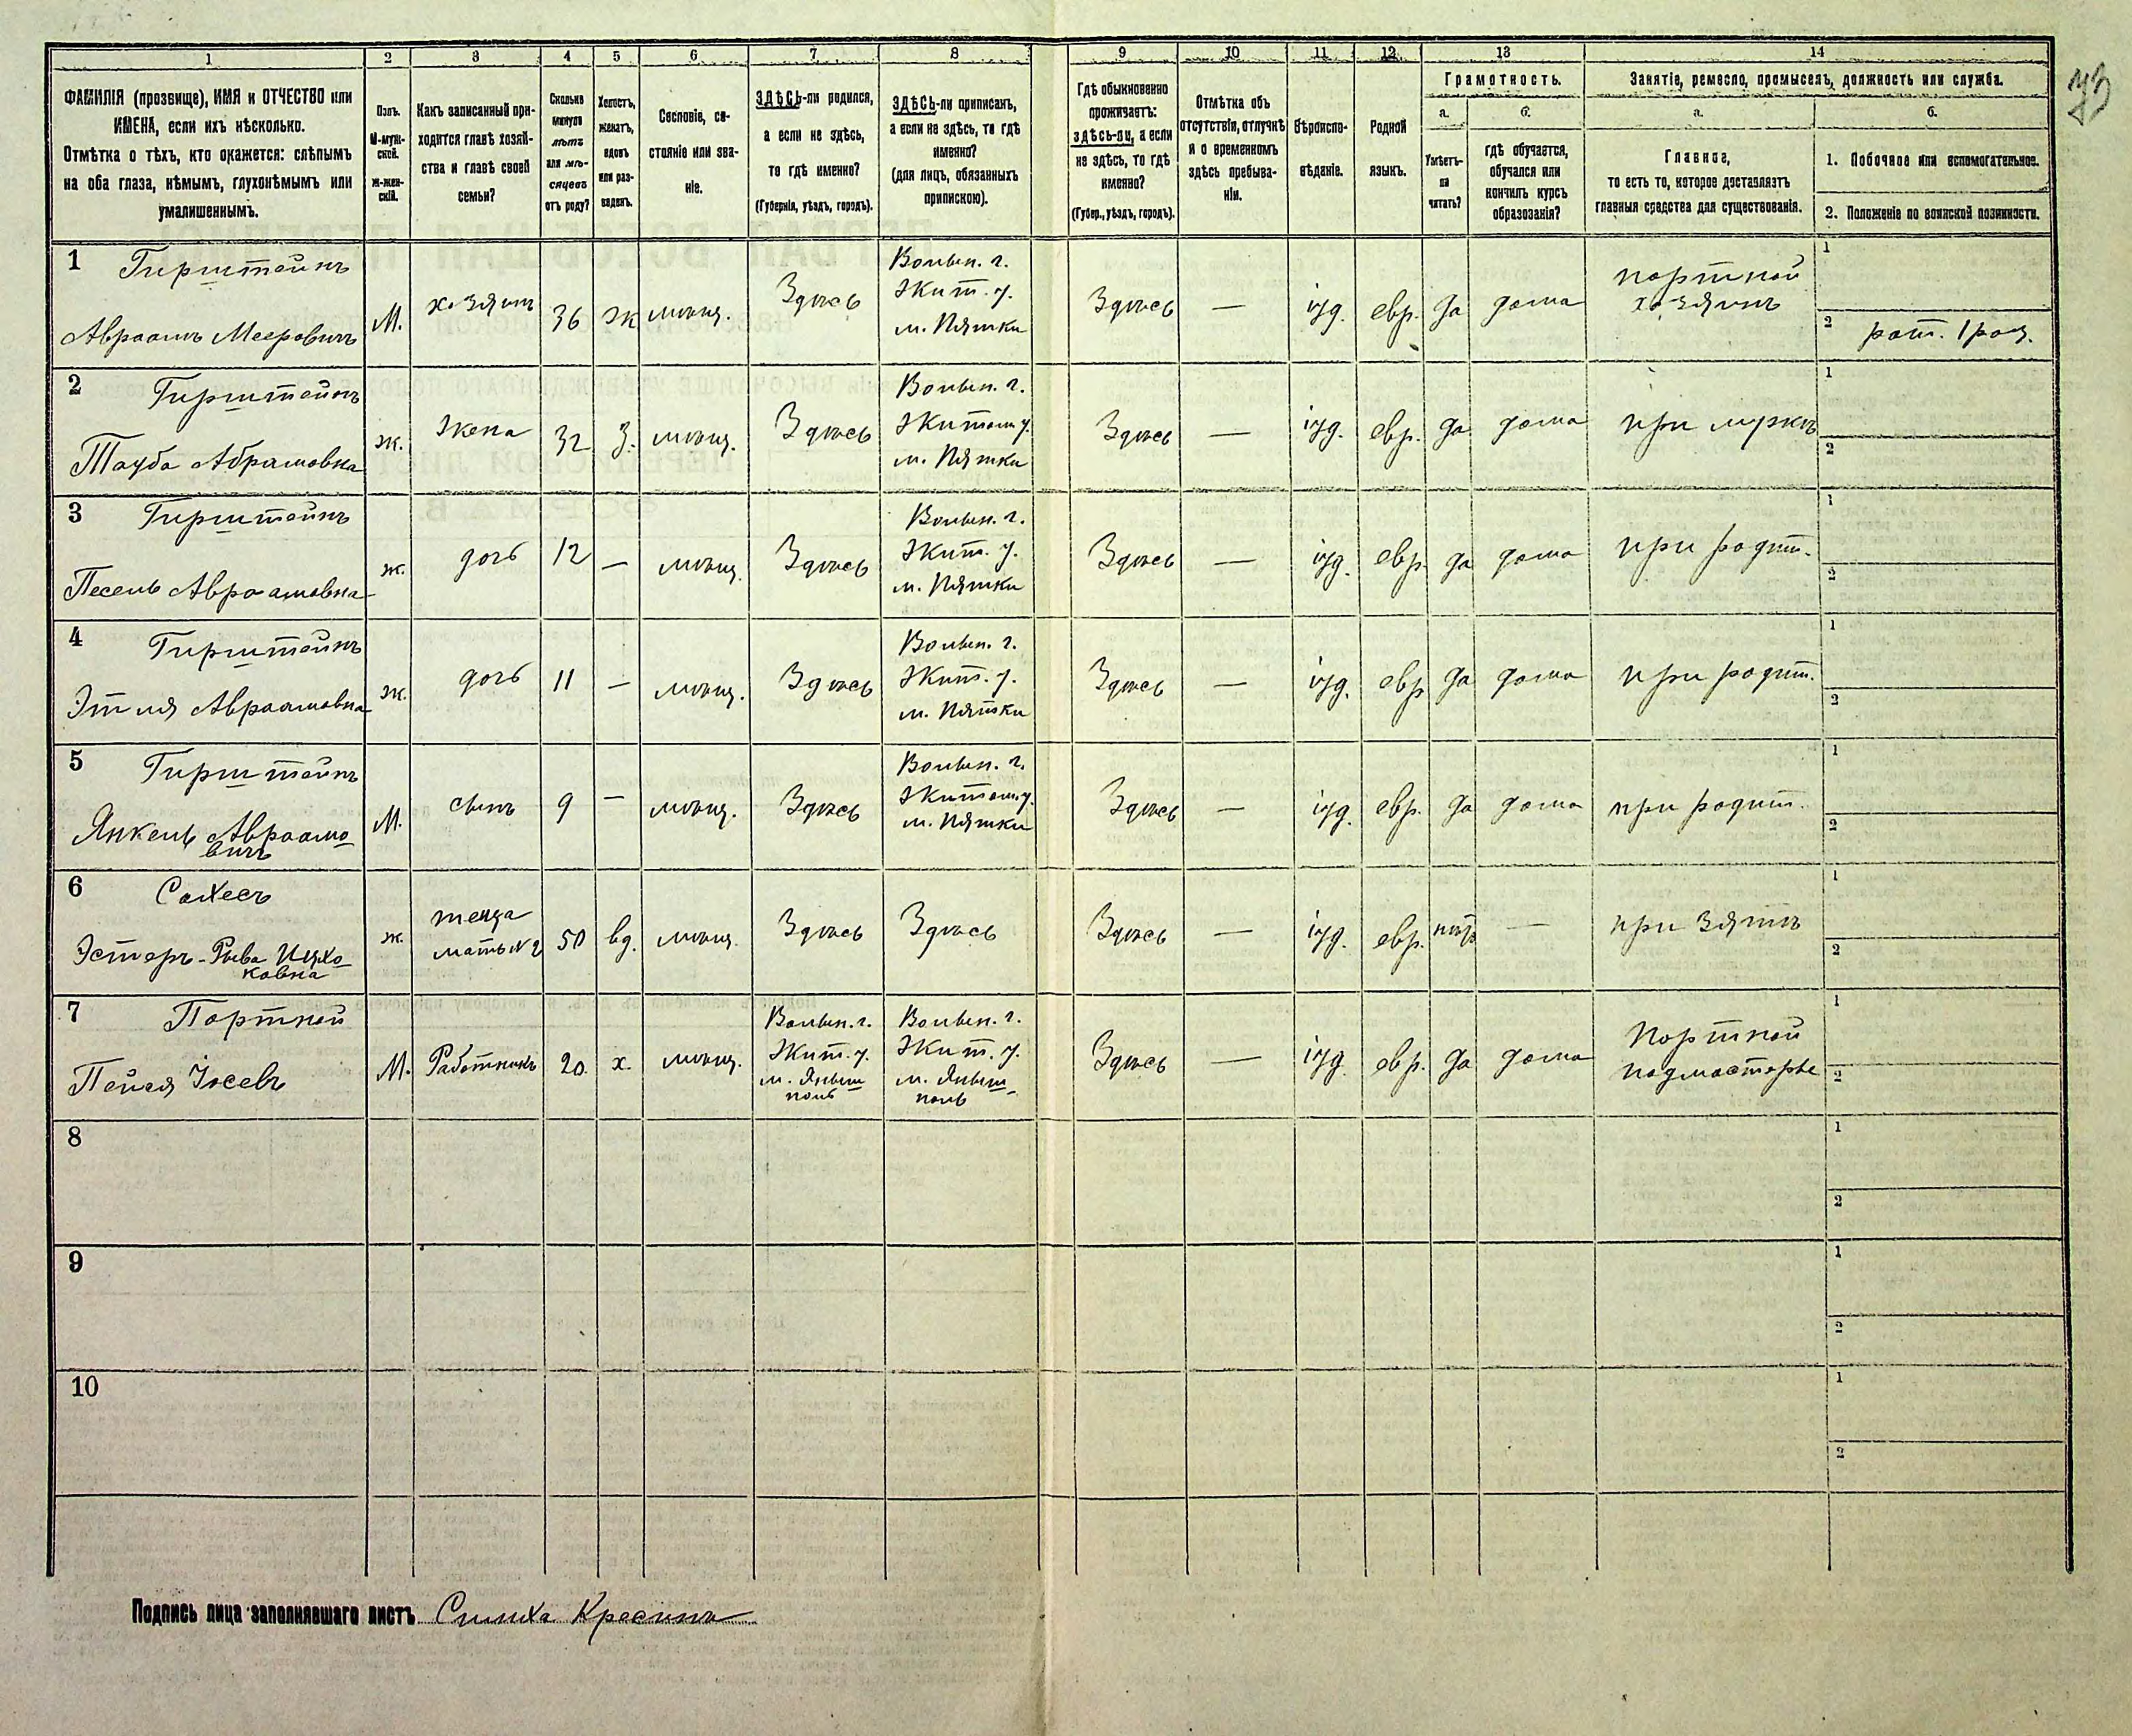 73
1 2 3 4 5 6 7 8 9 10 11 12 13 14
ФАМИЛІЯ (прозвище), ИМЯ и ОТЧЕСТВО или
ИМЕНА, если ихъ нѣсколько.
Отмѣтка о тѣхъ, кто окажется: слѣпымъ
на оба глаза, нѣмымъ, глухонѣмымъ или
умалишеннымъ.
Полъ.
М-муж-
ской.
Ж-жен-
скій.
Какъ записанный при-
ходится главѣ хозяй-
ства и главѣ своей
семьи?
Сколько
минуло
лѣтъ
или мѣ-
сяцевъ
отъ роду?
Холостъ,
женатъ,
вдовъ
или раз-
веденъ.
Сословіе, со-
стояніе или зва-
ніе.
ЗДѢСЬ-ли родился,
а если не здѣсь,
то гдѣ именно?
(Губернія, уѣздъ, городъ).
ЗДѢСЬ-ли приписанъ,
а если не здѣсь, то гдѣ
именно?
(для лицъ, обязанныхъ
припискою).
Гдѣ обыкновенно
проживаетъ:
здѣсь-ли, а если
не здѣсь, то гдѣ
именно?
(Губер., уѣздъ, городъ).
Отмѣтка объ
отсутствіи, отлучкѣ
и о временномъ
здѣсь пребыва-
ніи.
Вѣроиспо-
вѣданіе.
Родной
языкъ.
Грамотность.
а.
Умѣетъ-
ли
читать?
б.
гдѣ обучается,
обучался или
кончилъ курсъ
образованія?
Занятіе, ремесло, промыселъ, должность или служба.
а.
Главное,
то есть то, которое доставляетъ
главныя средства для существованія.
б.
1. Побочное или вспомогательное.
2. Положеніе по воинской повинности.
1 Гирштейнъ
Авраамъ Мееровичъ
М.
хозяинъ
36
ж
мѣщ.
Здѣсь
Волын. г.
Жит. у.
м. Пятки
Здѣсь
—
іуд.
евр.
да
дома
портной
хозяинъ
1
2 рат. 1 раз.
2 Гирштейнъ
Тауба Абрамовна
ж.
жена
32
З.
мѣщ.
Здѣсь
Волын. г.
Житом у.
м. Пятки
Здѣсь
—
іуд.
евр.
да
дома
при мужѣ
1
2
3 Гирштейнъ
Песель Авраамовна
ж.
дочь
12
—
мѣщ.
Здѣсь
Волын. г.
Жит. у.
м. Пятки
Здѣсь
—
іуд.
евр.
да
дома
при родит.
1
2
4 Гирштейнъ
Этля Авраамовна
ж.
дочь
11
—
мѣщ.
Здѣсь
Волын. г.
Жит. у.
м. Пятки
Здѣсь
—
іуд.
евр
да
дома
при родит.
1
2
5 Гирштейнъ
Янкель Авраамо
вичъ
М.
сынъ
9
—
мѣщ.
Здѣсь
Волын. г.
Житом у.
м. Пятки
Здѣсь
—
іуд.
евр.
да
дома
при родит.
1
2
6
Эстеръ-Рыва Ицко-
ковна
ж.
теща
мать №2
50
вд.
мѣщ.
Здѣсь
Здѣсь
Здѣсь
—
іуд.
евр.
нѣтъ
—
при зятѣ
1
2
7 Портной
Пейся Іосевъ
М.
Работникъ
20.
х.
мѣщ.
Волын. г.
Жит. у.
м. Яныш
поль
Волын. г.
Жит. у.
м. Януш-
поль
Здѣсь
—
іуд.
евр.
да
дома
Портной
подмастерье
1
2
8
1
2
9
1
2
10
1
2
Подпись лица заполнявшаго листъ Симха Кресинъ